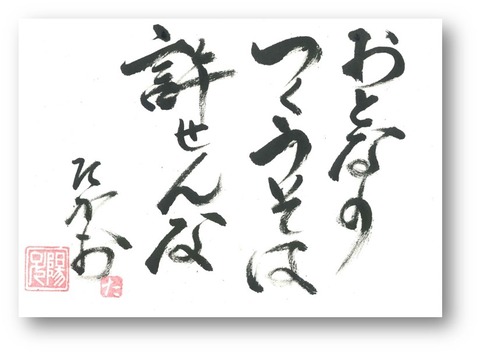 おとなの
つくうそは
許せんな